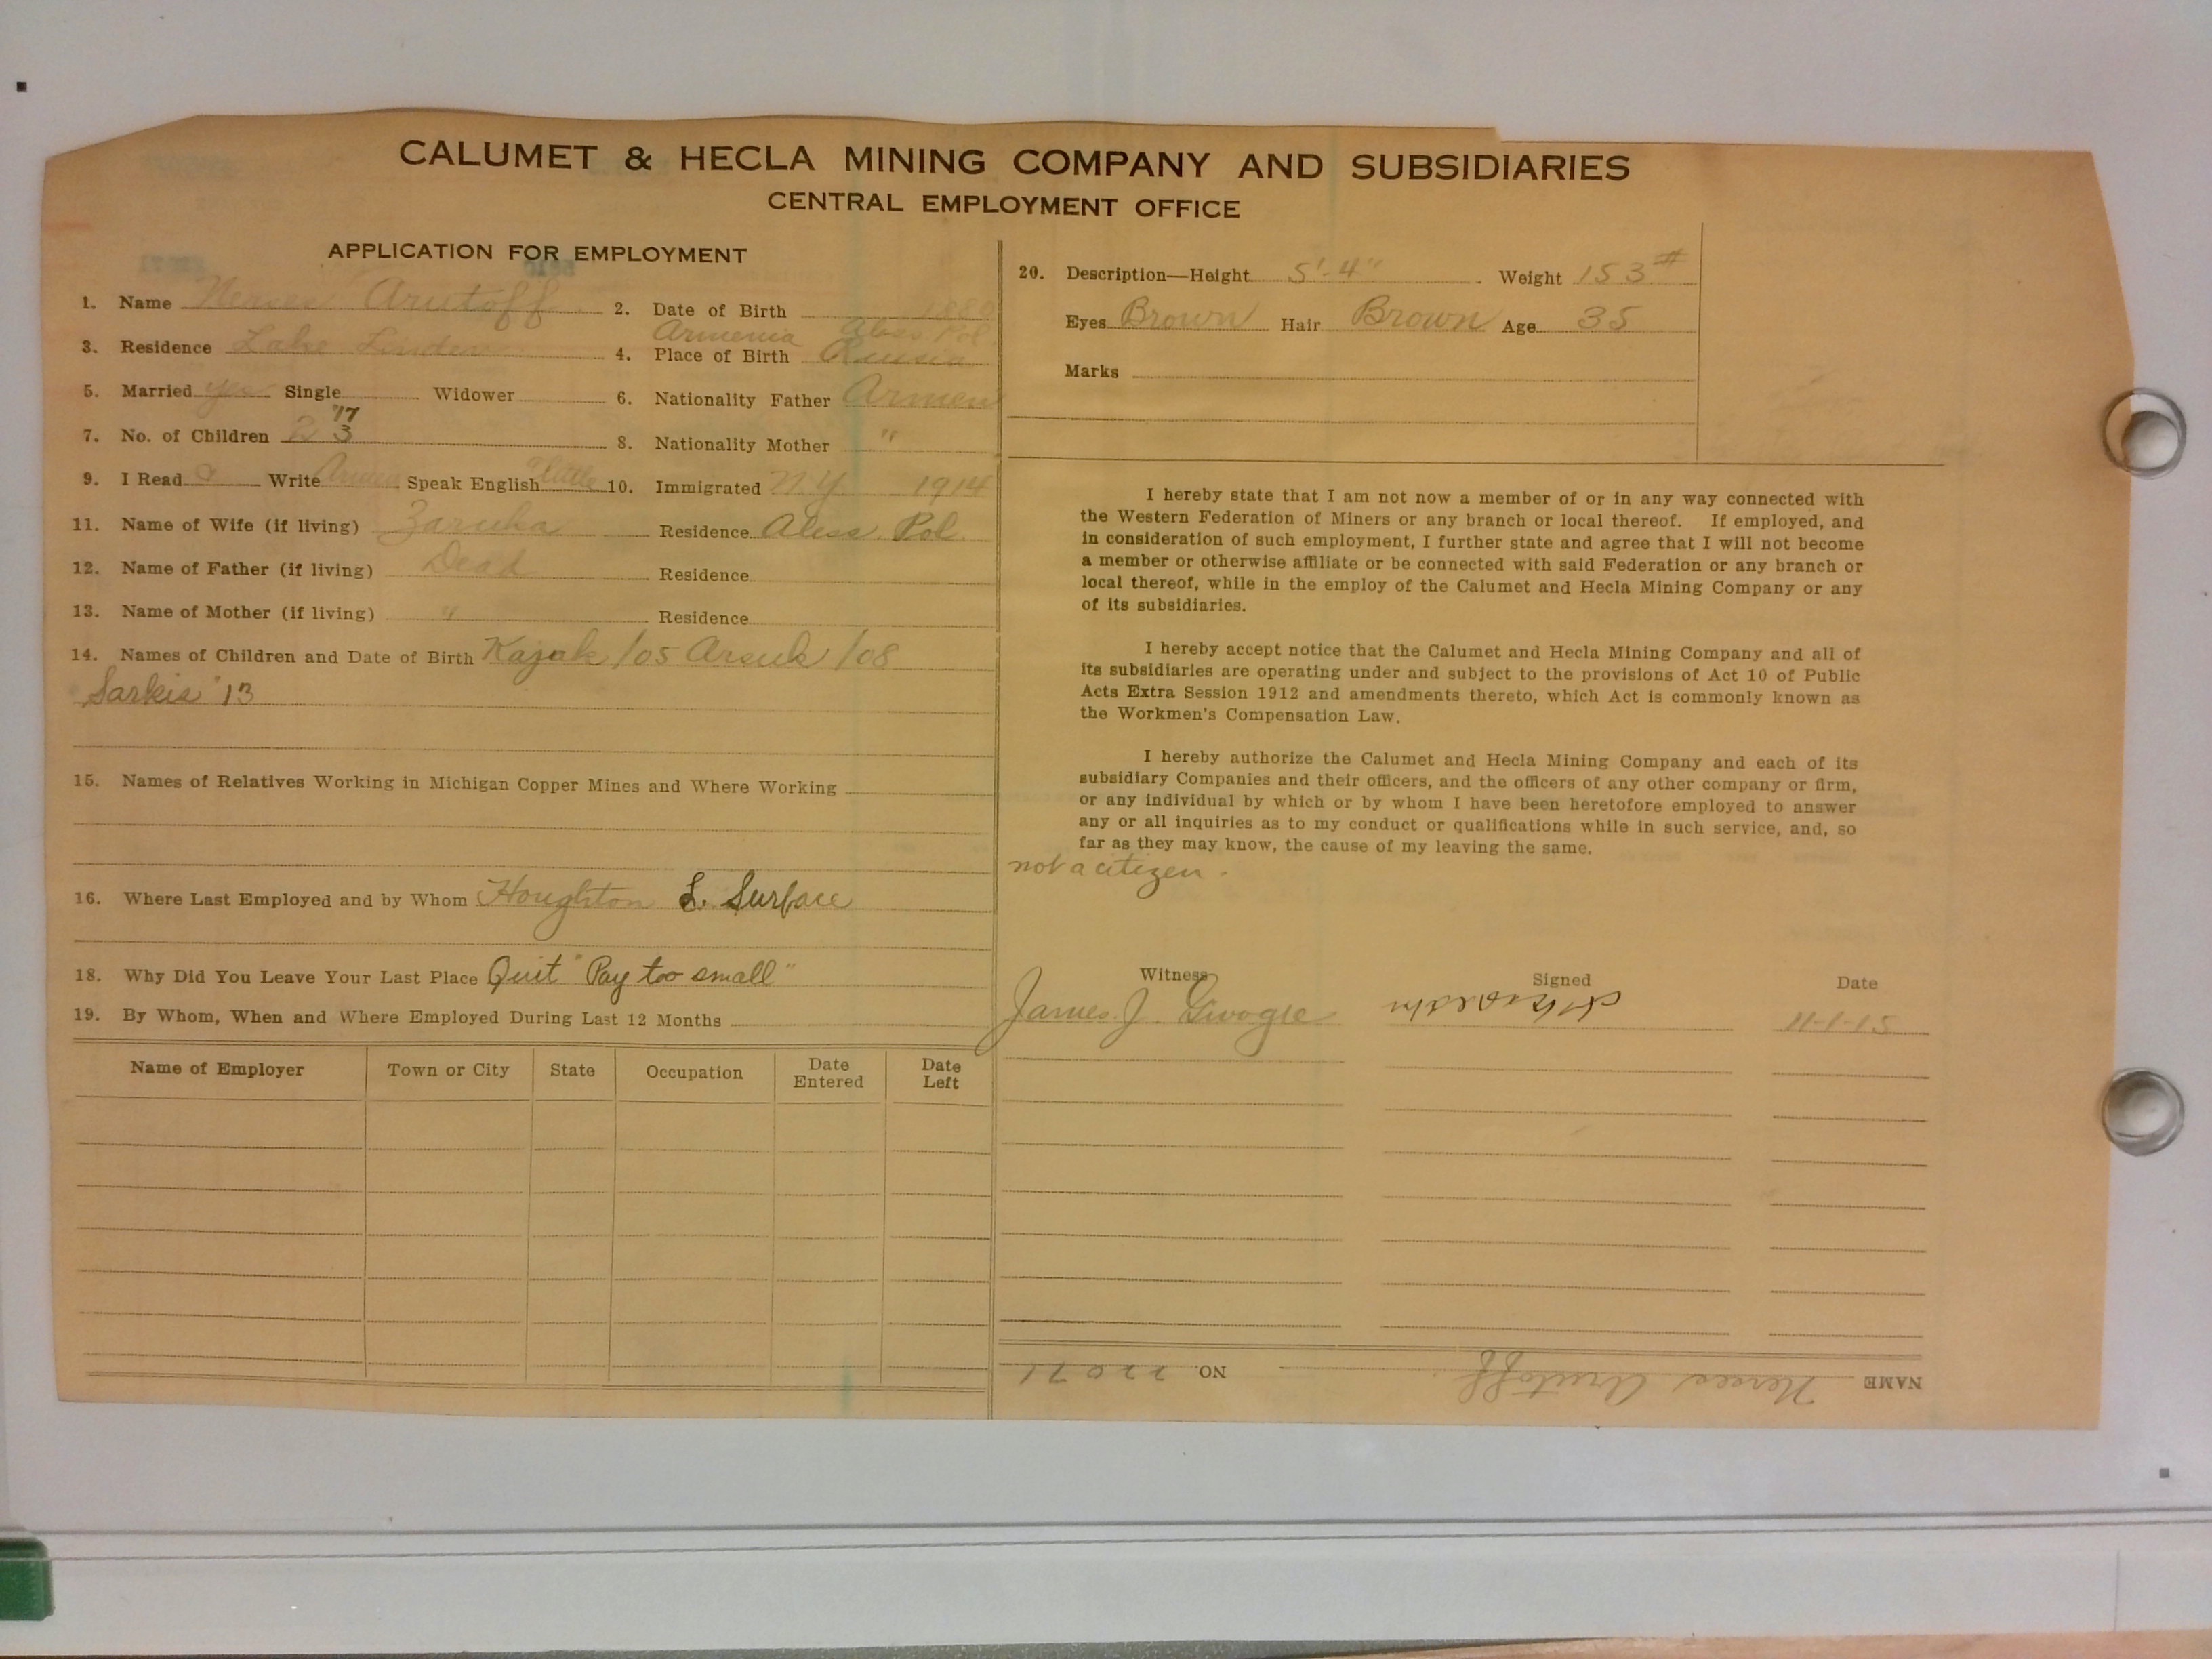 CALUMET & HECLA MINING COMPANY AND SUBSIDIARIES
CENTRAL EMPLOYMENT OFFICE
APPLICATION FOR EMPLOYMENT
1. Name Nerses Arutoff 2. Date of Birth 1880
Armenia Aless. Pol.
3. Residence Lake Linden 4. Place of Birth Russia
5. Married yes Single Widower 6. Nationality Father Armen
'17
7. No. of Children 2 3 8. Nationality Mother "
9. I Read a Write Armen Speak English a little 10. Immigrated N.Y. 1914
11. Name of Wife (if living) Zaruha Residence Aless. Pol.
12. Name of Father (if living) Dead Residence
13. Name of Mother (if living) " Residence
14. Names of Children and Date of Birth Kajak /05 Arsuk /08
Sarkis '13
15. Names of Relatives Working in Michigan Copper Mines and Where Working
16. Where Last Employed and by Whom Houghton L. Surface
18. Why Did You Leave Your Last Place Quit "Pay too small"
19. By Whom, When and Where Employed During Last 12 Months
Name of Employer Town or City State Occupation Date Entered Date Left
20. Description—Height 5'-4" Weight 153#
Eyes Brown Hair Brown Age 35
Marks
I hereby state that I am not now a member of or in any way connected with
the Western Federation of Miners or any branch or local thereof. If employed, and
in consideration of such employment, I further state and agree that I will not become
a member or otherwise affiliate or be connected with said Federation or any branch or
local thereof, while in the employ of the Calumet and Hecla Mining Company or any
of its subsidiaries.
I hereby accept notice that the Calumet and Hecla Mining Company and all of
its subsidiaries are operating under and subject to the provisions of Act 10 of Public
Acts Extra Session 1912 and amendments thereto, which Act is commonly known as
the Workmen's Compensation Law.
I hereby authorize the Calumet and Hecla Mining Company and each of its
subsidiary Companies and their officers, and the officers of any other company or firm,
or any individual by which or by whom I have been heretofore employed to answer
any or all inquiries as to my conduct or qualifications while in such service, and, so
far as they may know, the cause of my leaving the same.
not a citizen.
Witness Signed Date
James J. 11-1-15
NAME Nerses Arutoff NO. 22071